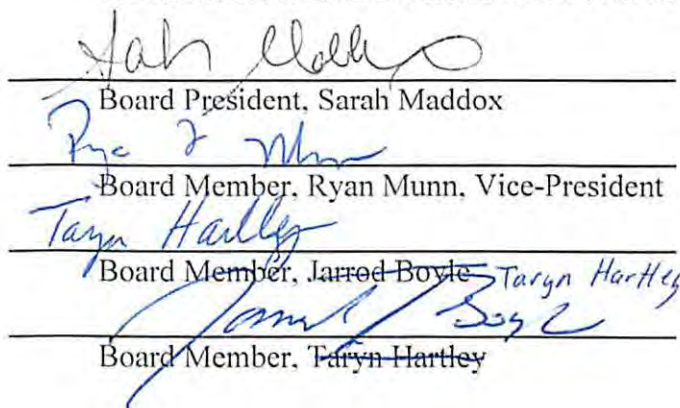 Sarah Maddox
Board President, Sarah Maddox
Ryan Munn
Board Member, Ryan Munn, Vice-President
Taryn Hartley
Board Member, Jarrod Boyle Taryn Hartley
Jarrod Boyle
Board Member, Taryn Hartley